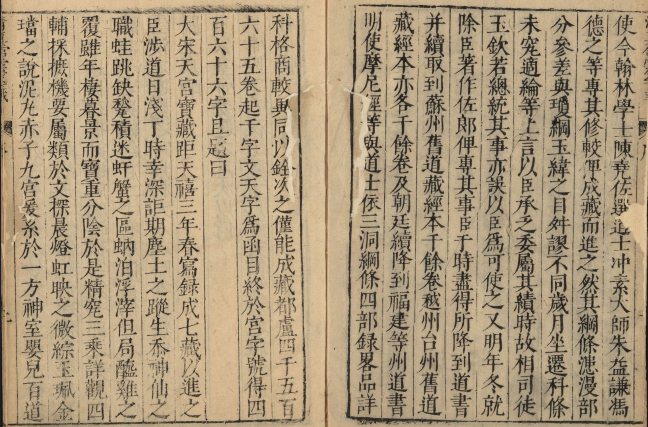 使今翰林學士陳堯佐選道士冲素大師朱益謙馮
德之等專其修較俾成藏而進之然其綱條漶漫部
分參差與瓊綱玉緯之目舛謬不同歲月坐遷科條
未究適綸等上言以臣承之委屬其績時故相司徒
王欽若總統其事亦誤以臣爲可使之又明年冬就
除臣著作佐郎俾專其事臣于時盡得所降到道書
并續取到蘇州舊道藏經本千餘卷越州台州舊道
藏經本亦各千餘卷及朝廷續降到福建等州道書
明使摩尼經等與道士依三洞綱條四部録畧品詳
科格商較異同以銓次之僅能成藏都盧四千五百
六十五卷起千字文天字爲函目終於宫字號得四
百六十六字且題曰
大宋天宫寶藏距天禧三年春寫録成七藏以進之
臣涉道日淺丁時幸深詎期塵土之蹤生忝神仙之
職蛙跳缺甃積迷虷蟹之區蚋泊浮滓但局醯雞之
覆雖年棲暮景而寶重分陰於是精究三乘詳觀四
輔採摭機要屬類於文探晨燈虹映之微綜玉珮金
璫之說泥九亦于九宫爰系於一方神室嬰兒百道